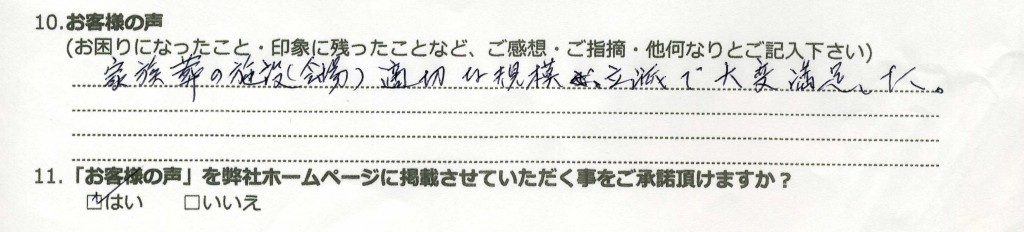 10.お客様の声
(お困りになったこと・印象に残ったことなど、ご感想・ご指摘・他何なりとご記入下さい)
家族葬の施設(会場)適切な規模 立派で大変満足した。
11.「お客様の声」を弊社ホームページに掲載させていただく事をご承諾頂けますか？
☑はい □いいえ